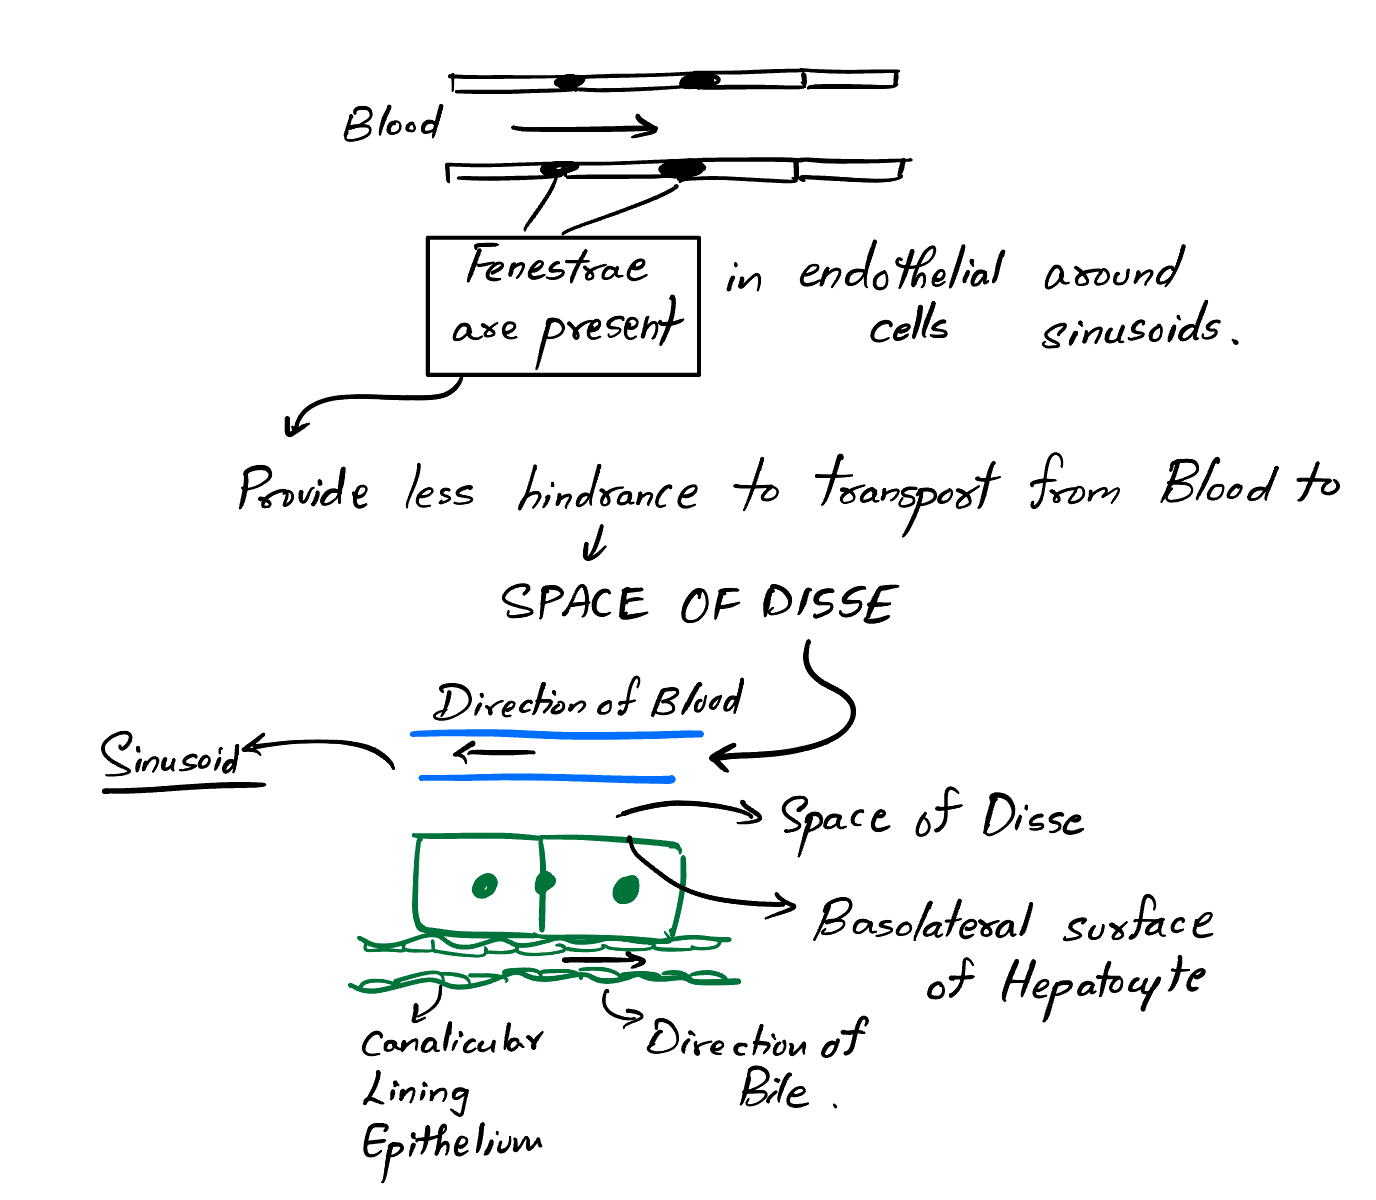 Blood
Fenestrae
are present
in endothelial around
cells sinusoids.
Provide less hindrance to transport from Blood to
SPACE OF DISSE
Direction of Blood
Sinusoid
Space of Disse
Basolateral surface
of Hepatocyte
Canalicular
Lining
Epithelium
Direction of
Bile.